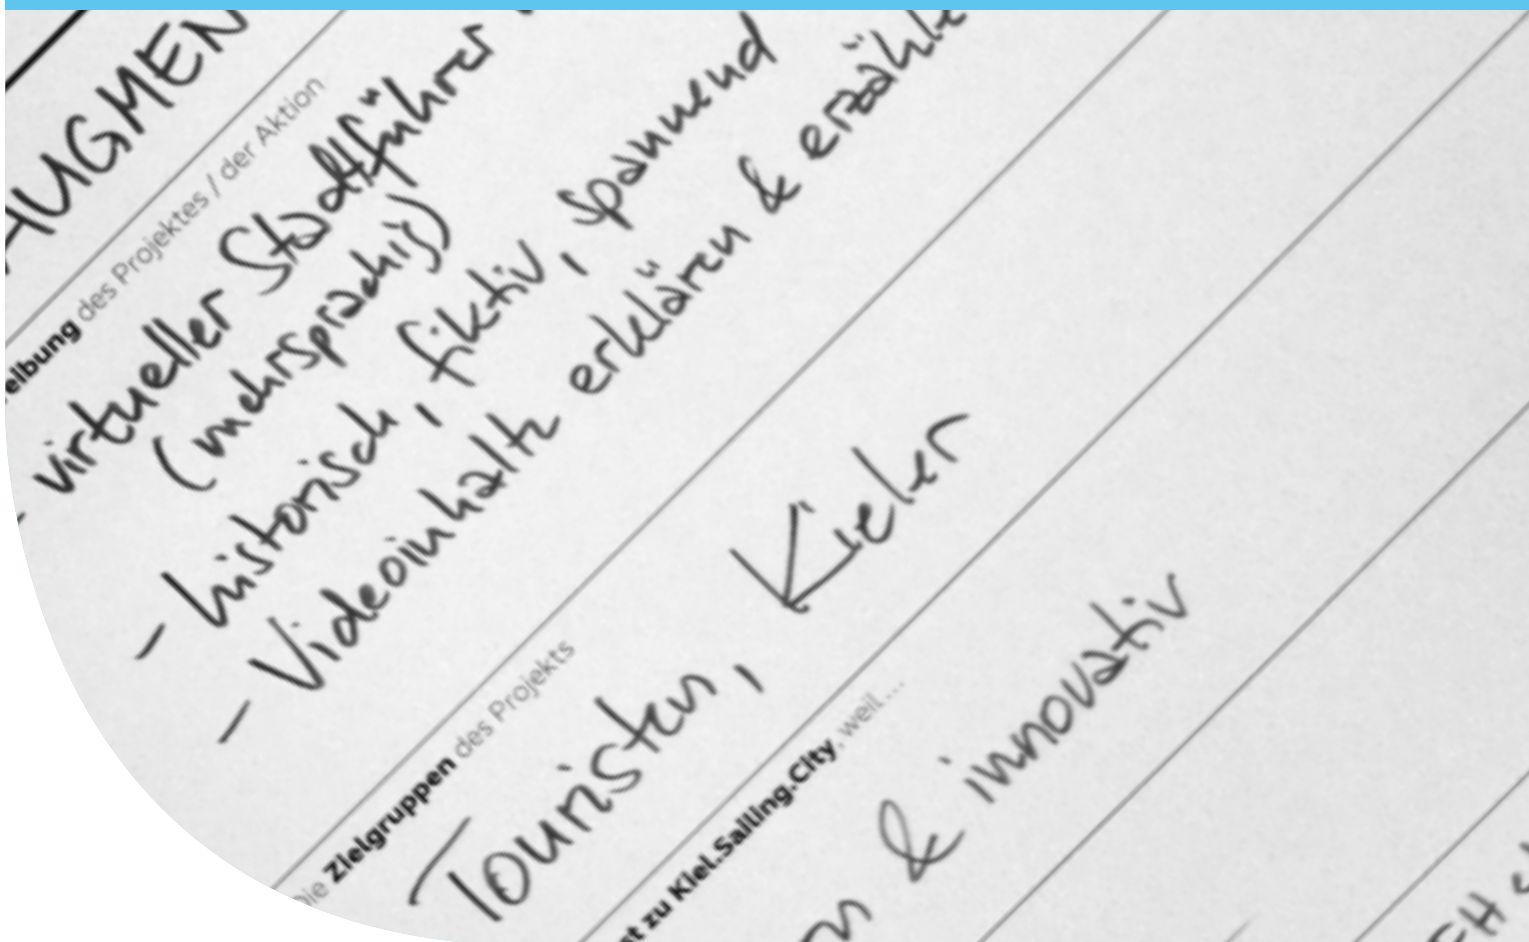 AUGMEN
eibung des Projektes / der Aktion
- virtueller Stadtführer
(mehrsprachig)
- historisch, fiktiv, spannend
- Videoinhalte erklären & erzähle
Die Zielgruppen des Projekts
Touristen, Kieler
st zu Kiel.Sailing.City, weil ...
& innovativ